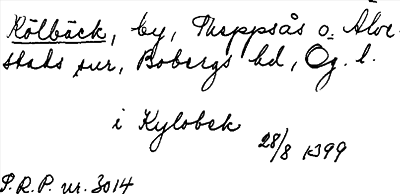 Kölbäck, by, Threppsås o. Älve-
stads snr, Bobergs hd, Ög. l.
i Kylobek
28/8 1399
S.R.P. nr. 3014